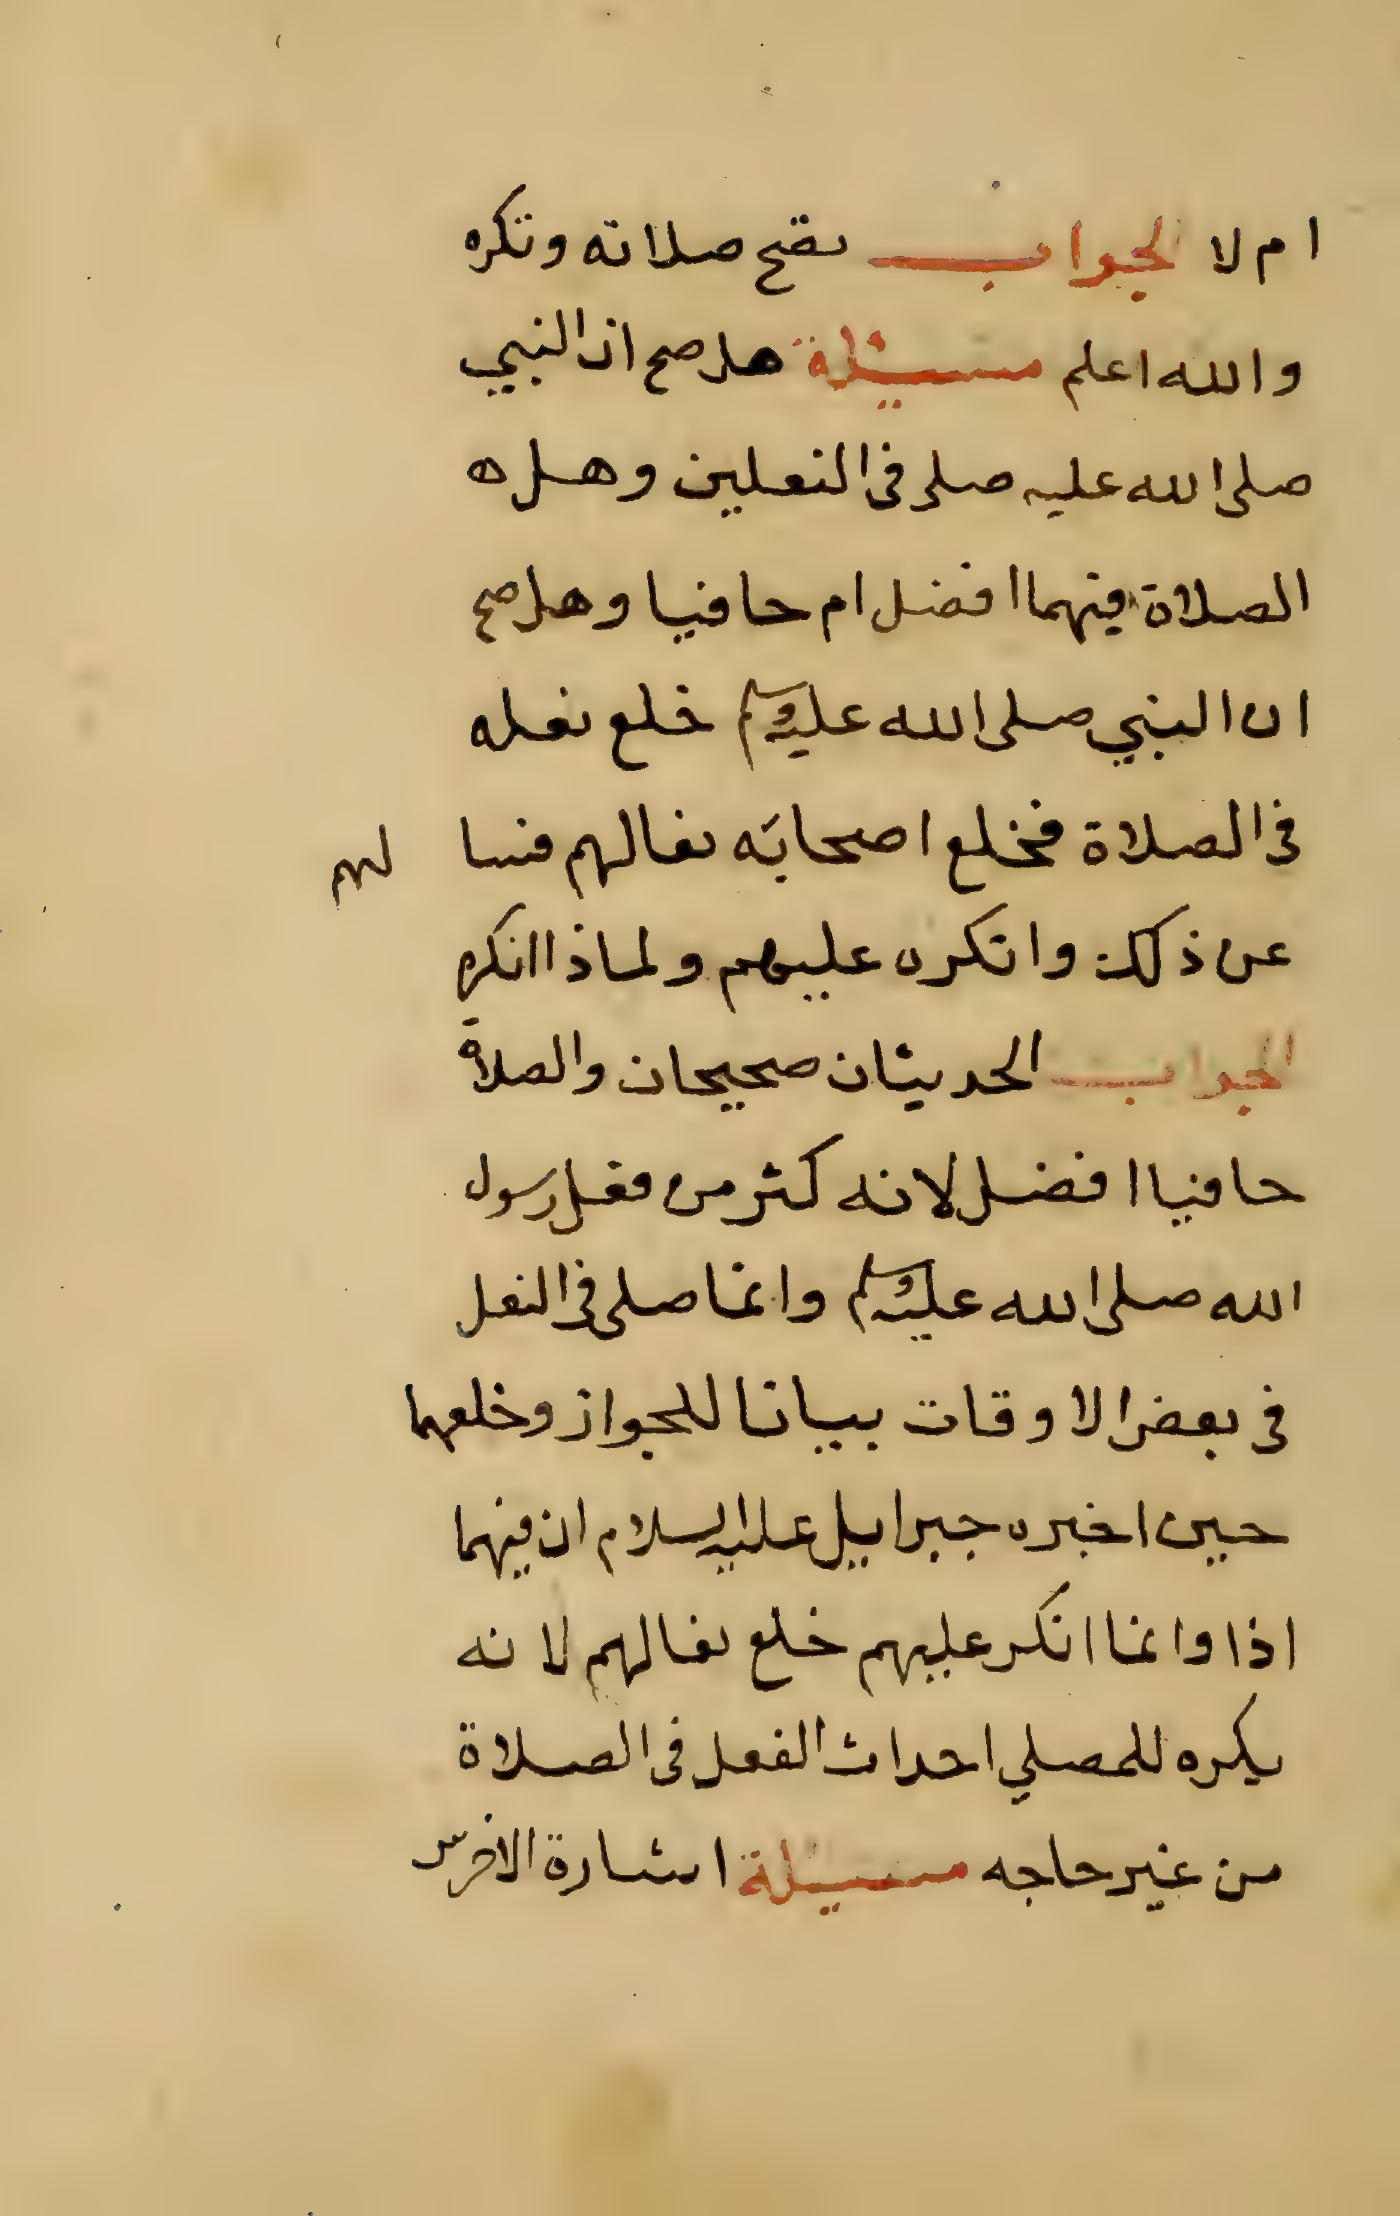 ام لا الجواب تصح صلاته وتكره
والله اعلم مسئلة هل صح ان النبي
صلى الله عليه صلى في النعلين وهل ه
الصلاة فيهما افضل ام حافيا وهل صح
ان النبي صلى الله عليه وسلم خلع نعله
في الصلاة فخلع اصحابه نعالهم فسا لهم
عن ذلك وانكره عليهم ولماذا انكره
الجواب الحديثان صحيحان والصلاة
حافيا افضل لانه كثر من فعل رسول
الله صلى الله عليه وسلم وانما صلى في النعل
في بعض الاوقات بيانا للجواز وخلعهما
حين اخبره جبرايل عليه السلام ان فيهما
اذا وانما انكر عليهم خلع نعالهم لانه
يكره للمصلي احداث الفعل في الصلاة
من غير حاجه مسئلة اشارة الاخرس